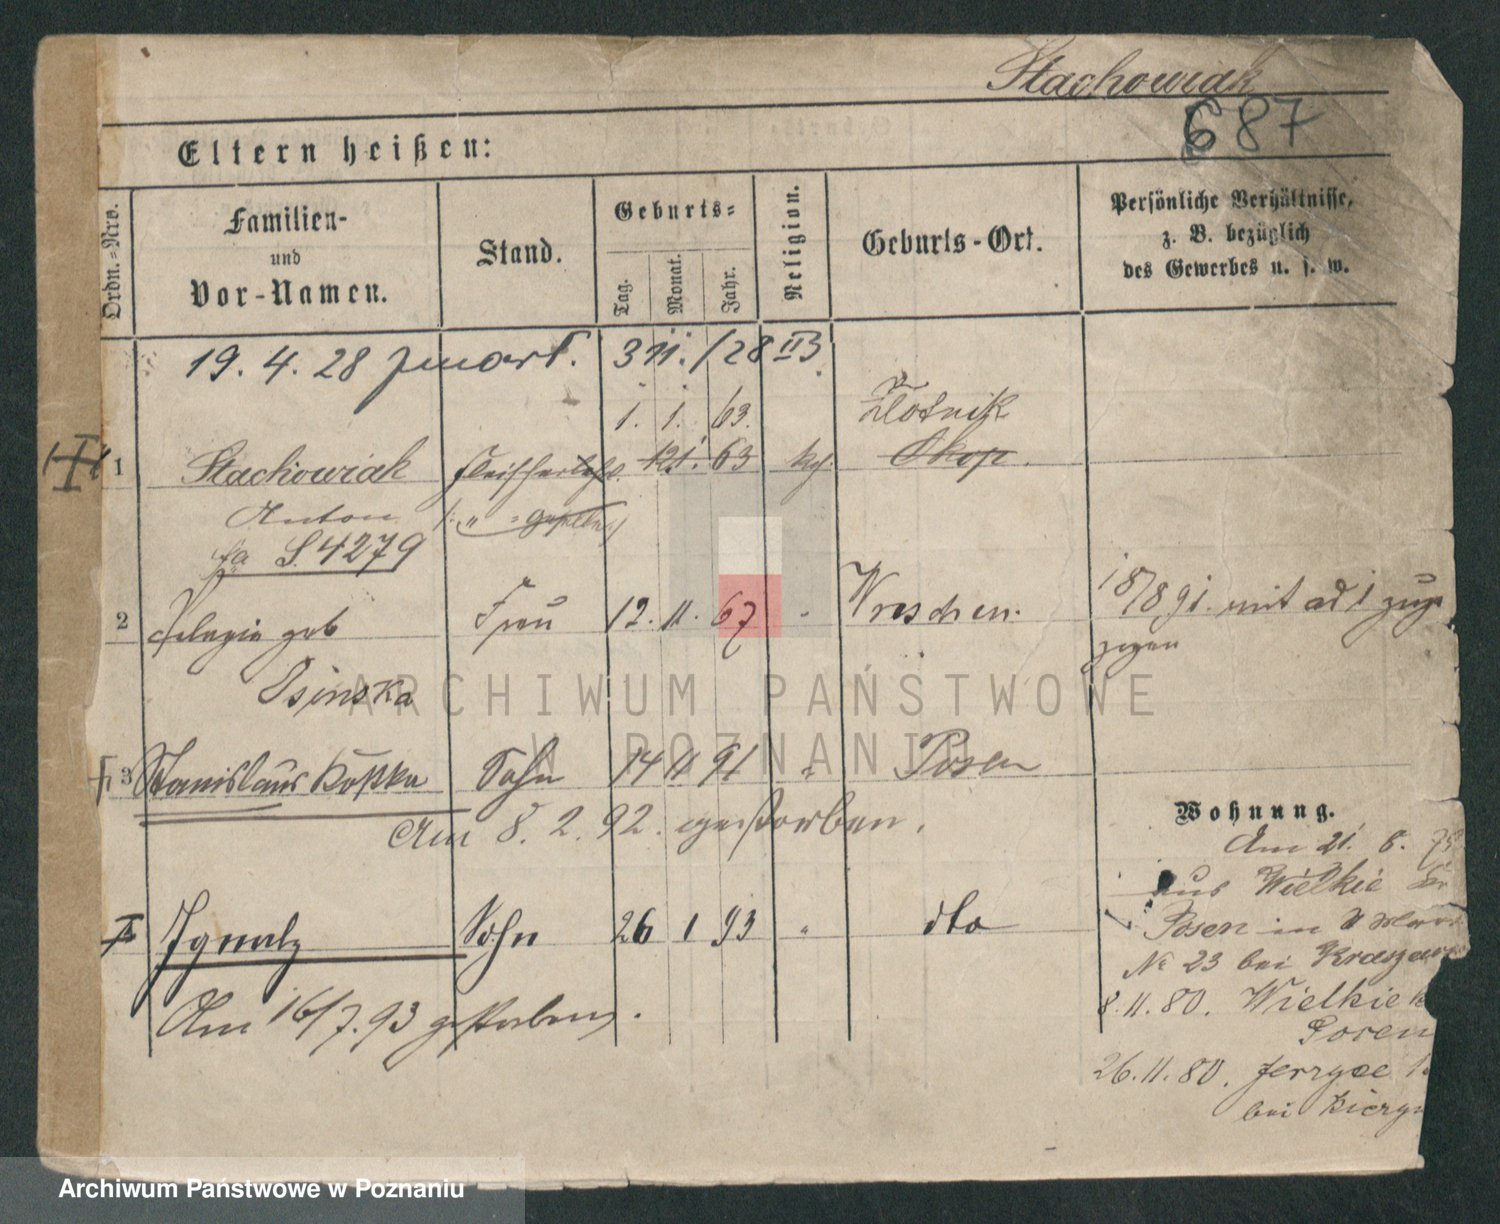 Stachowiak
687
Eltern heißen:
Ordn.-Nro.
Familien-
und
Vor-Namen.
Stand.
Geburts-
Tag.
Monat.
Jahr.
Religion.
Geburts-Ort.
Persönliche Verhältnisse,
z. B. bezüglich
des Gewerbes u. s. w.
19. 4. 28
1. 1. 63.
Zlotnik
1 Stachowiak 63 kg. Skop.
Anton
S. 4279
2 Pelagia geb Frau 12. 11. 67 Wreschen. 18/8 91. mit ad 1 zuge
zogen
Osinska
3 Stanislaus Kostka Sohn 14 11 91 " Posen
Am 8. 2. 92. gestorben.
Wohnung.
Am 21. 8.
aus Wielkie
Ignatz Sohn 26 1 93 " dto
Posen in
No 23 bei
Am 16/7. 93 gestorben.
8. 11. 80. Wielkie
Posen
26. 11. 80. Jerzyce
bei
ARCHIWUM PAŃSTWOWE
W POZNANIU
Archiwum Państwowe w Poznaniu